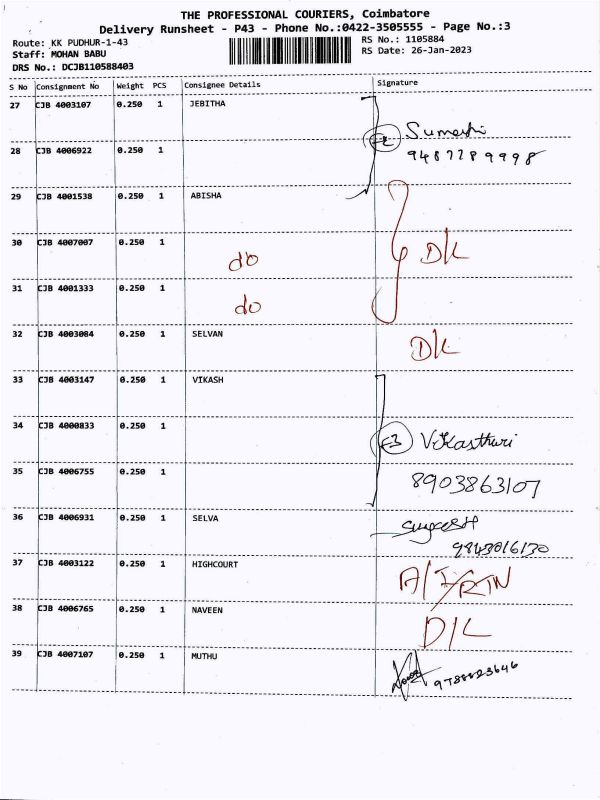 THE PROFESSIONAL COURIERS, Coimbatore
Delivery Runsheet - P43 - Phone No.:0422-3505555 - Page No.:3
Route: KK PUDHUR-1-43 RS No.: 1105884
Staff: MOHAN BABU RS Date: 26-Jan-2023
DRS No.: DCJB110588403
S No Consignment No Weight PCS Consignee Details Signature
27 CJB 4003107 0.250 1 JEBITHA
Sumathi
28 CJB 4006922 0.250 1 9487789998
29 CJB 4001538 0.250 1 ABISHA
30 CJB 4007007 0.250 1 do DK
31 CJB 4001333 0.250 1 do
32 CJB 4003084 0.250 1 SELVAN DK
33 CJB 4003147 0.250 1 VIKASH
34 CJB 4000833 0.250 1 V.Kasthuri
35 CJB 4006755 0.250 1 8903863107
36 CJB 4006931 0.250 1 SELVA
9843016130
37 CJB 4003122 0.250 1 HIGHCOURT
38 CJB 4006765 0.250 1 NAVEEN D/L
39 CJB 4007107 0.250 1 MUTHU 9788823646